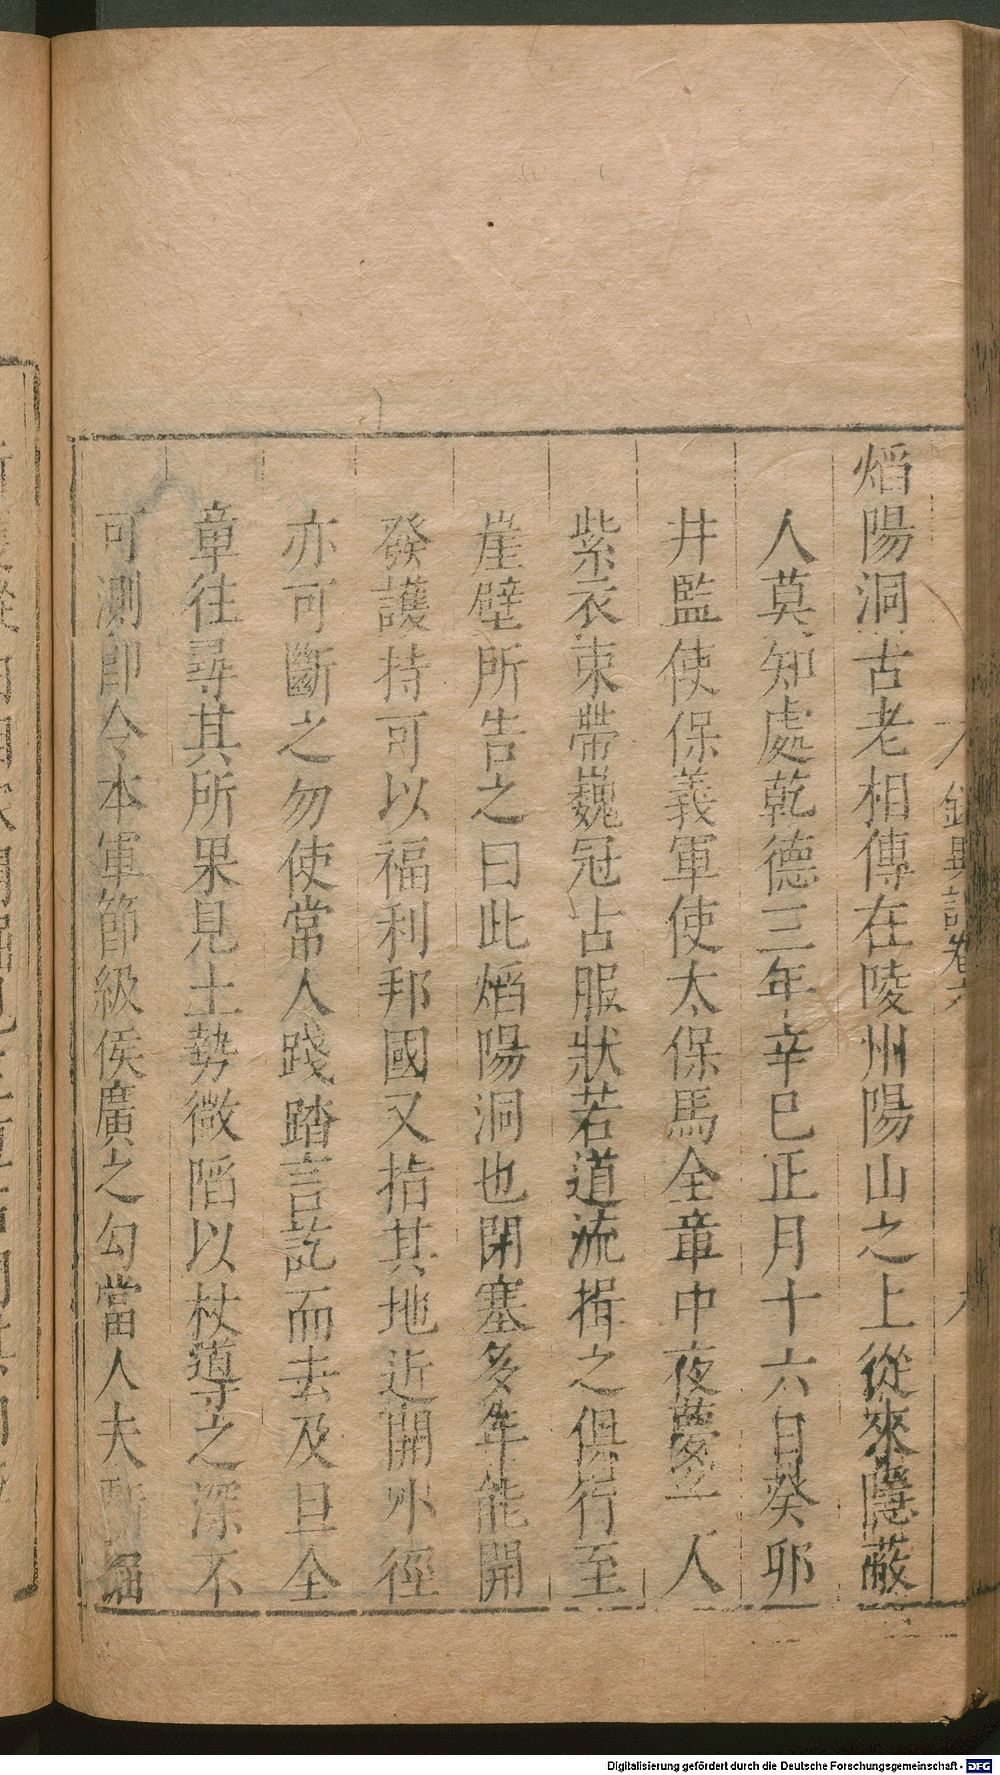 錄異記卷六
焰陽洞古老相傳在陵州陽山之上從來隱蔽
人莫知處乾德三年辛巳正月十六日癸卯
井監使保義軍使太保馬全章中夜夢一人
紫衣束帶巍冠古服狀若道流揖之俱行至
崖壁所告之曰此焰陽洞也閉塞多年能開
發護持可以福利邦國又指其地近開小徑
亦可斷之勿使常人踐踏言訖而去及旦全
章往尋其所果見土勢微陷以杖導之深不
可測卽令本軍節級侯廣之勾當人夫斸掘
Digitalisierung gefördert durch die Deutsche Forschungsgemeinschaft - DFG